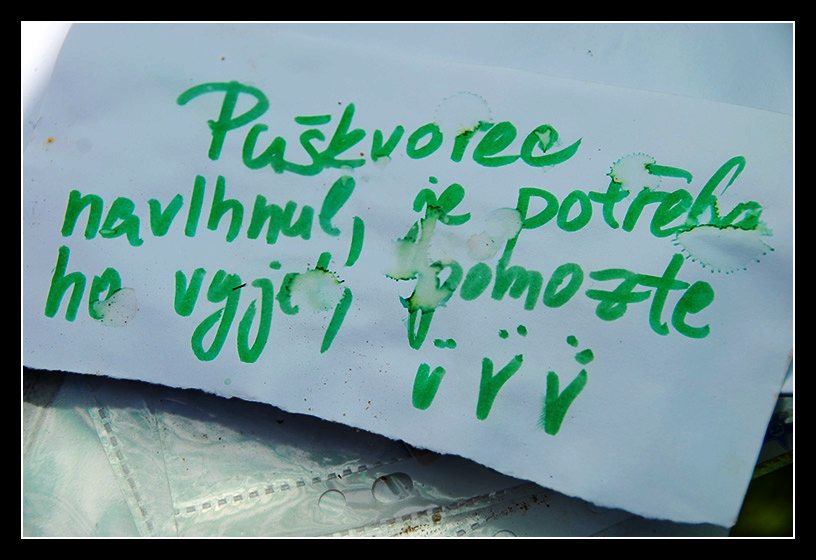 Puškvorec
navlhnul, je potřeba
ho vyjet, pomozte